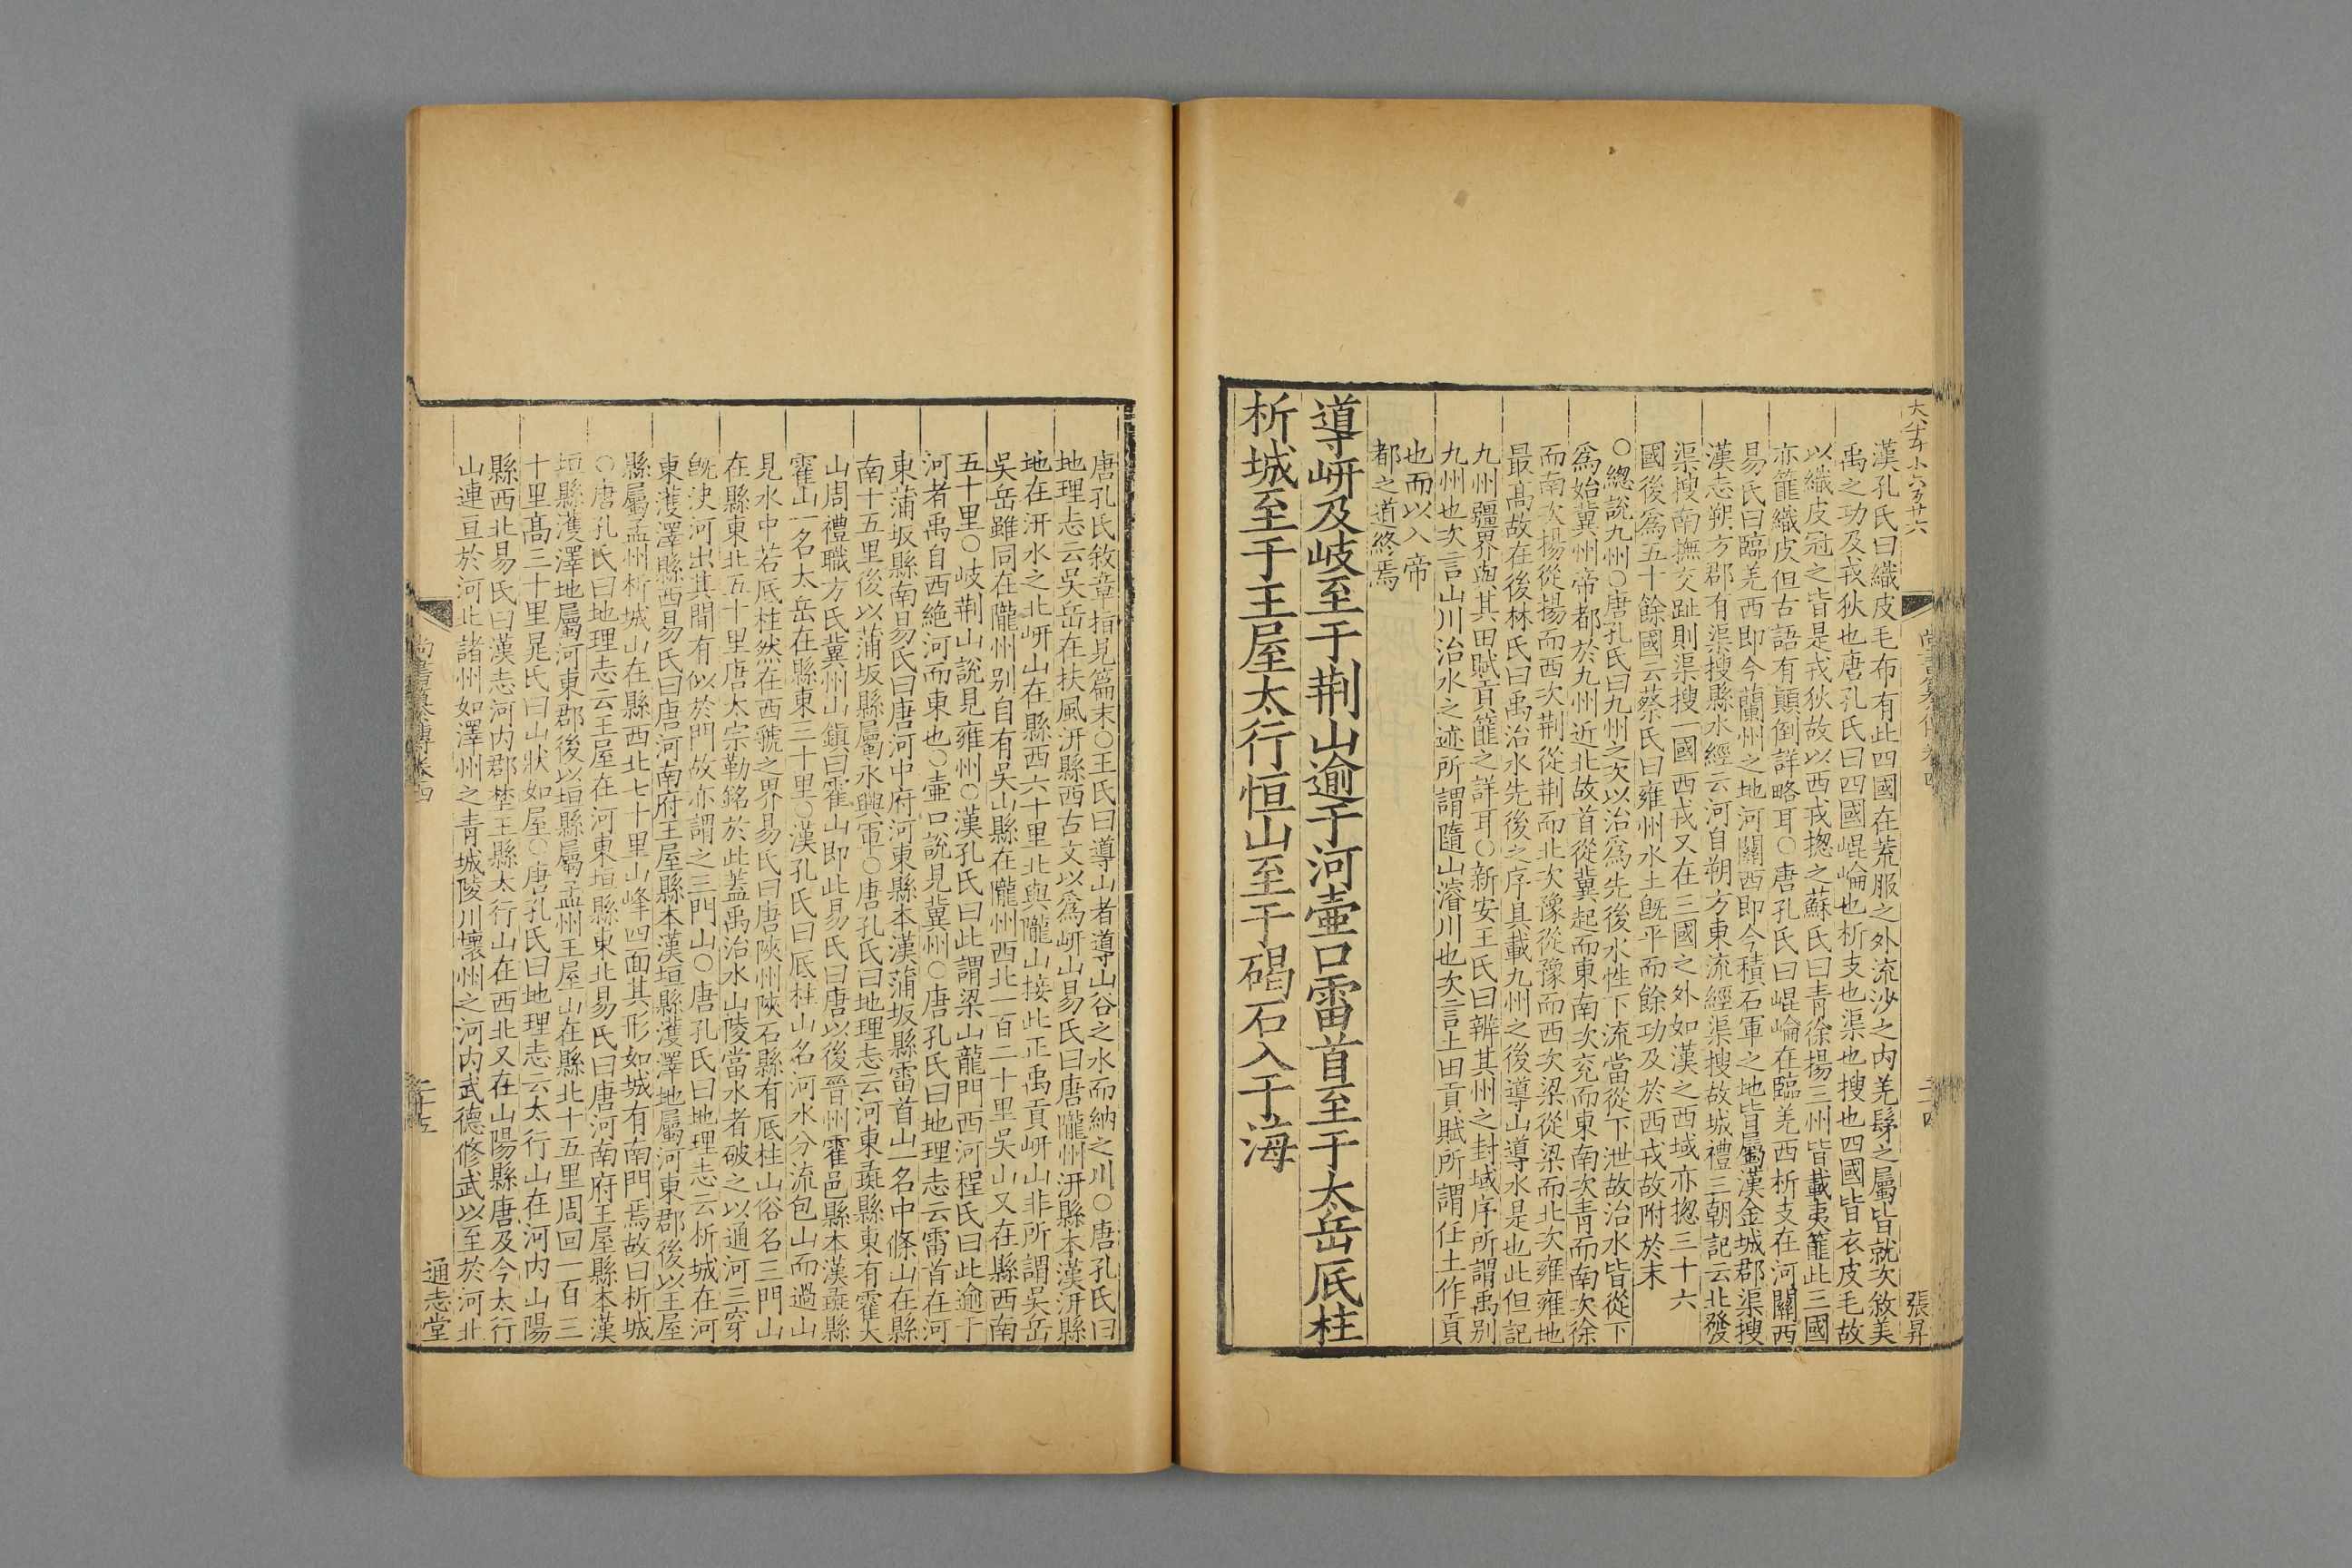 大八十五小六百廿六
張昇
漢孔氏曰織皮毛布有此四國在荒服之外流沙之内羌髳之屬皆就次敘美
禹之功及戎狄也唐孔氏曰四國崐崘也析支也渠也搜也四國皆衣皮毛故
以織皮冠之皆是戎狄故以西戎揔之蘇氏曰青徐揚三州皆載夷篚此三國
亦篚織皮但古語有顛倒詳略耳○唐孔氏曰崐崘在臨羌西析支在河關西
易氏曰臨羌西即今蘭州之地河關西即今積石軍之地皆屬漢金城郡渠搜
漢志朔方郡有渠搜縣水經云河自朔方東流經渠搜故城禮三朝記云北發
渠搜南撫交趾則渠搜一國西戎又在三國之外如漢之西域亦揔三十六
國後爲五十餘國云蔡氏曰雍州水土旣平而餘功及於西戎故附於末
○總說九州○唐孔氏曰九州之次以治爲先後水性下流當從下泄故治水皆從下
爲始冀州帝都於九州近北故首從冀起而東南次兖而東南次青而南次徐
而南次揚從揚而西次荆從荆而北次豫從豫而西次梁從梁而北次雍雍地
最髙故在後林氏曰禹治水先後之序具載九州之後導山導水是也此但記
九州疆界與其田賦貢篚之詳耳○新安王氏曰辨其州之封域序所謂禹别
九州也次言山川治水之迹所謂隨山濬川也次言土田貢賦所謂任土作貢
也而以入帝
都之道終焉
導岍及岐至于荆山逾于河壷口雷首至于太岳厎柱
析城至于王屋太行恒山至于碣石入于海
唐孔氏敘章指見篇末○王氏曰導山者導山谷之水而納之川○唐孔氏曰
地理志云吳岳在扶風汧縣西古文以爲岍山易氏曰唐隴州汧縣本漢汧縣
地在汧水之北岍山在縣西六十里北與隴山接此正禹貢岍山非所謂吳岳
吳岳雖同在隴州别自有吳山縣在隴州西北一百二十里吳山又在縣西南
五十里○岐荆山說見雍州○漢孔氏曰此謂梁山龍門西河程氏曰此逾于
河者禹自西絶河而東也○壷口說見冀州○唐孔氏曰地理志云雷首在河
東蒲坂縣南易氏曰唐河中府河東縣本漢蒲坂縣雷首山一名中條山在縣
南十五里後以蒲坂縣屬永興軍○唐孔氏曰地理志云河東彘縣東有霍大
山周禮職方氏冀州山鎮曰霍山即此易氏曰唐以後晉州霍邑縣本漢彘縣
霍山一名太岳在縣東三十里○漢孔氏曰厎柱山名河水分流包山而過山
見水中若厎柱然在西虢之界易氏曰唐陜州陜石縣有厎柱山俗名三門山
在縣東北五十里唐太宗勒銘於此蓋禹治水山陵當水者破之以通河三穿
旣決河出其間有似於門故亦謂之三門山○唐孔氏曰地理志云析城在河
東濩澤縣西易氏曰唐河南府王屋縣本漢垣縣濩澤地屬河東郡後以王屋
縣屬孟州析城山在縣西北七十里山峰四面其形如城有南門焉故曰析城
○唐孔氏曰地理志云王屋在河東垣縣東北易氏曰唐河南府王屋縣本漢
垣縣濩澤地屬河東郡後以垣縣屬孟州王屋山在縣北十五里周回一百三
十里髙三十里晁氏曰山狀如屋○唐孔氏曰地理志云太行山在河内山陽
縣西北易氏曰漢志河内郡埜王縣太行山在西北又在山陽縣唐及今太行
山連亘於河北諸州如澤州之青城陵川懷州之河内武德修武以至於河北
尚書纂傳卷四
二十五
通志堂